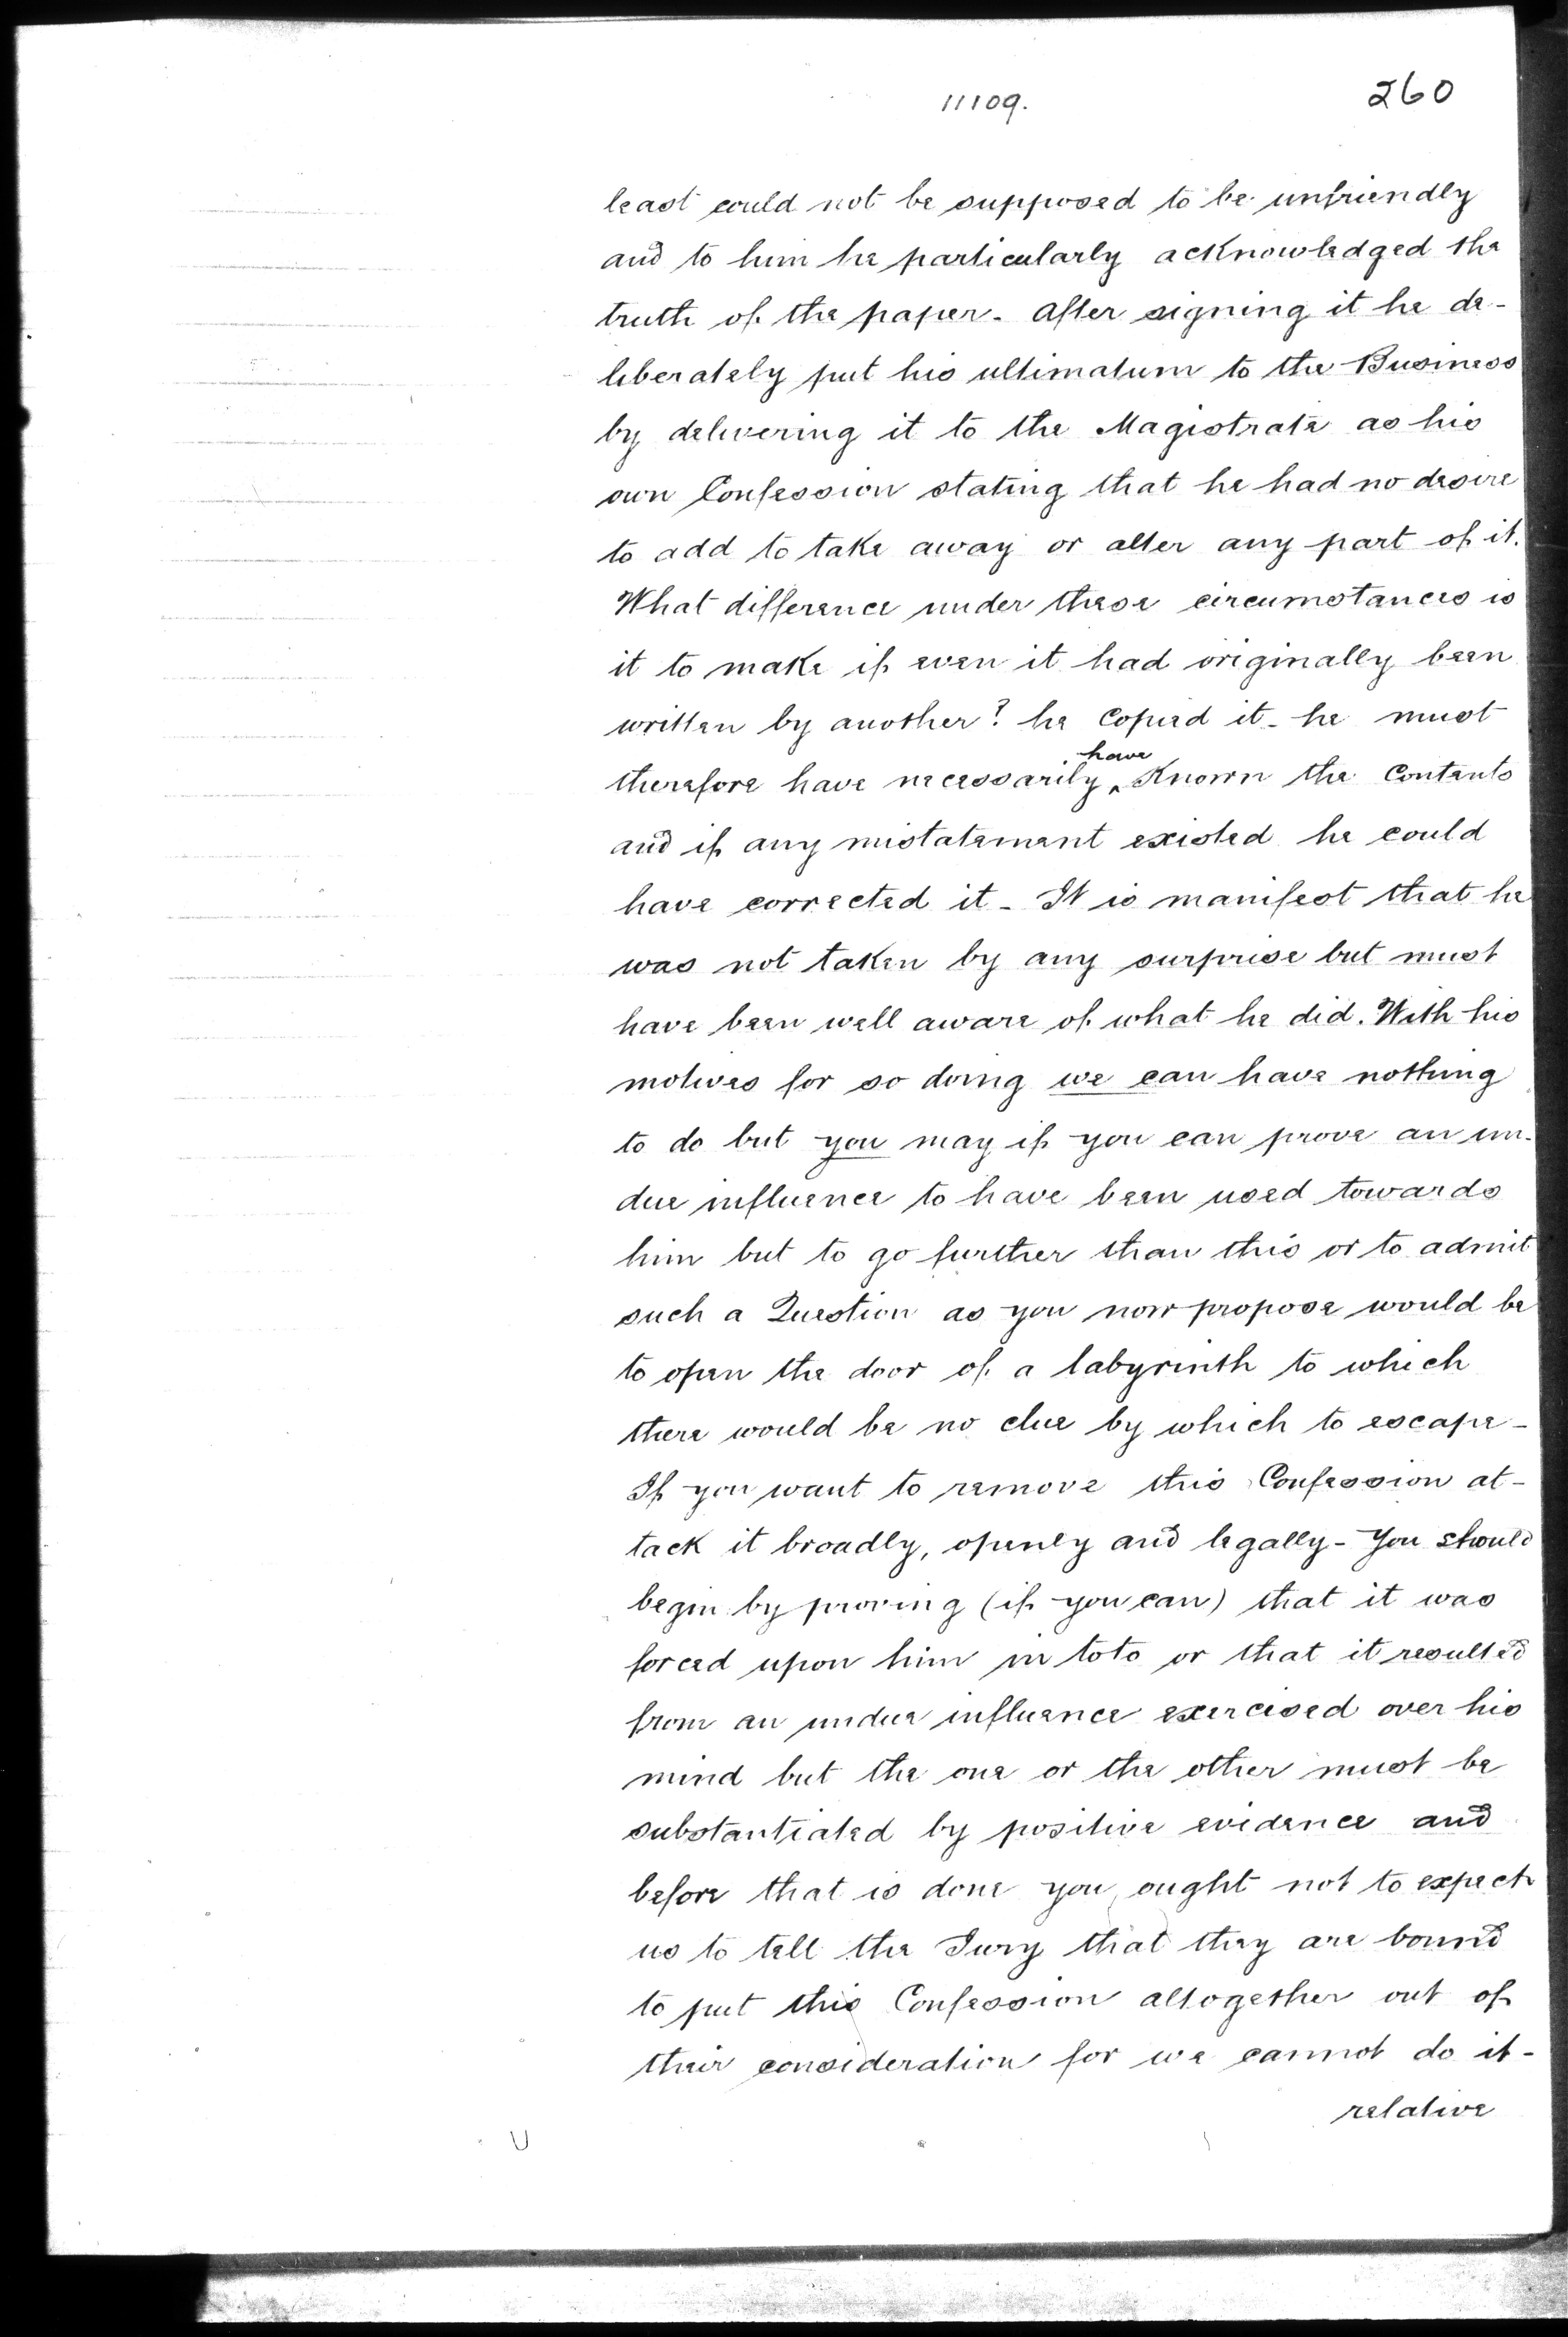 11109.
260
least could not be supposed to be unfriendly
and to him he particularly acknowledged the
truth of the paper - After signing it he de-
liberately put his ultimatum to the Business
by delivering it to the Magistrate as his
own Confession stating that he had no desire
to add to take away or alter any part of it.
What difference under these circumstances is
it to make if even it had originally been
written by another? he Copied it - he must
have
therefore have necessarily ^ Known the Contents
and if any mistatement existed he could
have corrected it - It is manifest that he
was not taken by any surprise but must
have been well aware of what he did. With his
motives for so doing we can have nothing
to do but you may if you can prove an un-
due influence to have been used towards
him but to go further than this or to admit
such a Question as you now propose would be
to open the door of a labyrinth to which
there would be no clue by which to escape -
If you want to remove this Confession at-
tack it broadly, openly and legally - You should
begin by proving (if you can) that it was
forced upon him in toto or that it resulted
from an undue influence exercised over his
mind but the one or the other must be
substantiated by positive evidence and
before that is done you ought not to expect
us to tell the Jury that they are bound
to put this Confession altogether out of
their consideration for we cannot do it -
relative